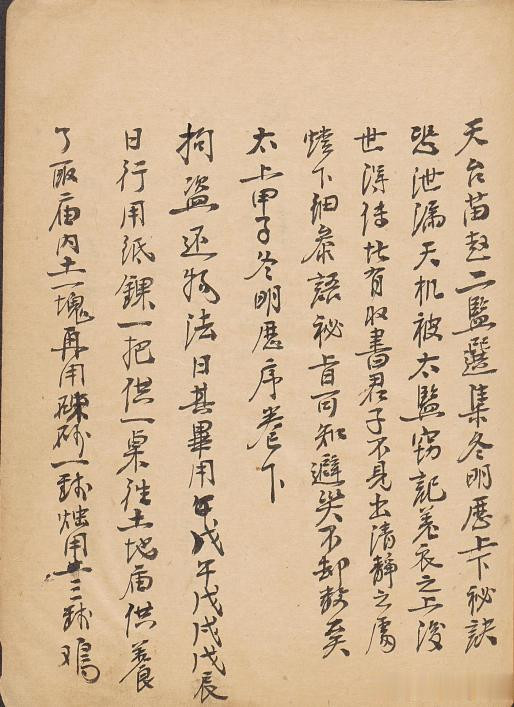 天台苗赵二監選集冬明歷上下秘訣
恐泄漏天机被太監窃記着衣之上後
世淂傳比有收書君子不見出清静之處
燈下細叅語秘旨可知避灾不却敎矣
太上甲子冬明歷序卷下
拘盗还物法日其畢用午戊午戊戌戊辰
日行用纸錁一把供一桌往土地庙供養
了取庙内土一塊再用硃砂一錢燭用廿三錢鸡